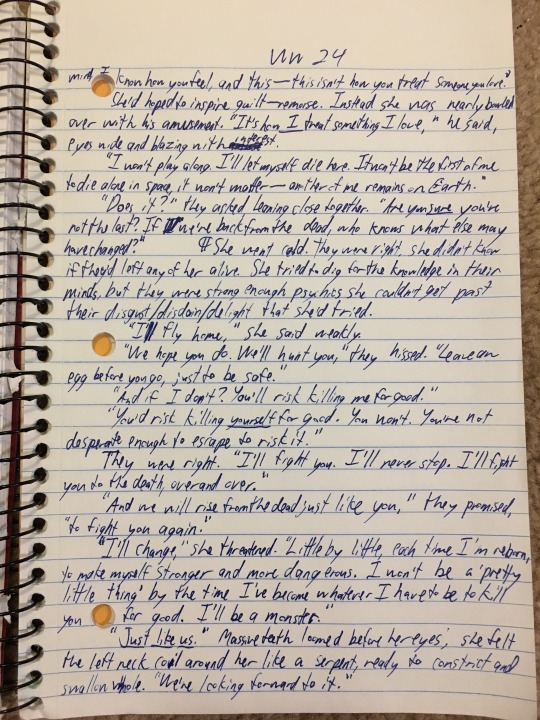 UW 24
mind, I know how you feel, and this—this isn't how you treat someone you love."
She'd hoped to inspire guilt—remorse. Instead she was nearly bowled
over with his amusement. "It's how I treat something I love," he said,
eyes wide and blazing with interest.
"I won't play along. I'll let myself die here. It won't be the first of me
to die alone in space, it won't matter—another of me remains on Earth."
"Does it?" they asked leaning close together. "Are you sure you're
not the last? If we're back from the dead, who knows what else may
have changed?" ¶ She went cold. They were right she didn't know
if they'd left any of her alive. She tried to dig for the knowledge in their
minds, but they were strong enough psychics she couldn't get past
their disgust/disdain/delight that she'd tried.
"I'll fly home," she said weakly.
"We hope you do. We'll hunt you," they hissed. "Leave an
egg before you go, just to be safe."
"And if I don't? You'll risk killing me for good."
"You'd risk killing yourself for good. You won't. You're not
desperate enough to escape to risk it."
They were right. "I'll fight you. I'll never stop. I'll fight
you to the death, over and over."
"And we will rise from the dead just like you," they promised,
"to fight you again."
"I'll change," she threatened. "Little by little, each time I'm reborn,
to make myself stronger and more dangerous. I won't be a 'pretty
little thing' by the time I've become whatever I have to be to kill
you for good. I'll be a monster."
"Just like us." Massive teeth loomed before her eyes; she felt
the left neck coil around her like a serpent, ready to constrict and
swallow whole. "We're looking forward to it."